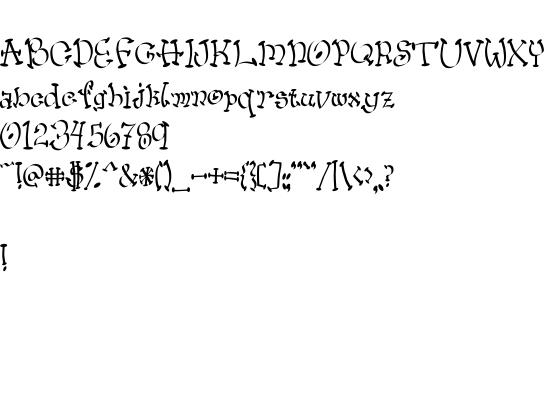 ABCDEFGHIJKLMNOPQRSTUVWXY
abcdefghijklmnopqrstuvwxyz
0123456789
~`!@#$%^&*()_-+={}[]:;"'"'/|\<>,.?
!